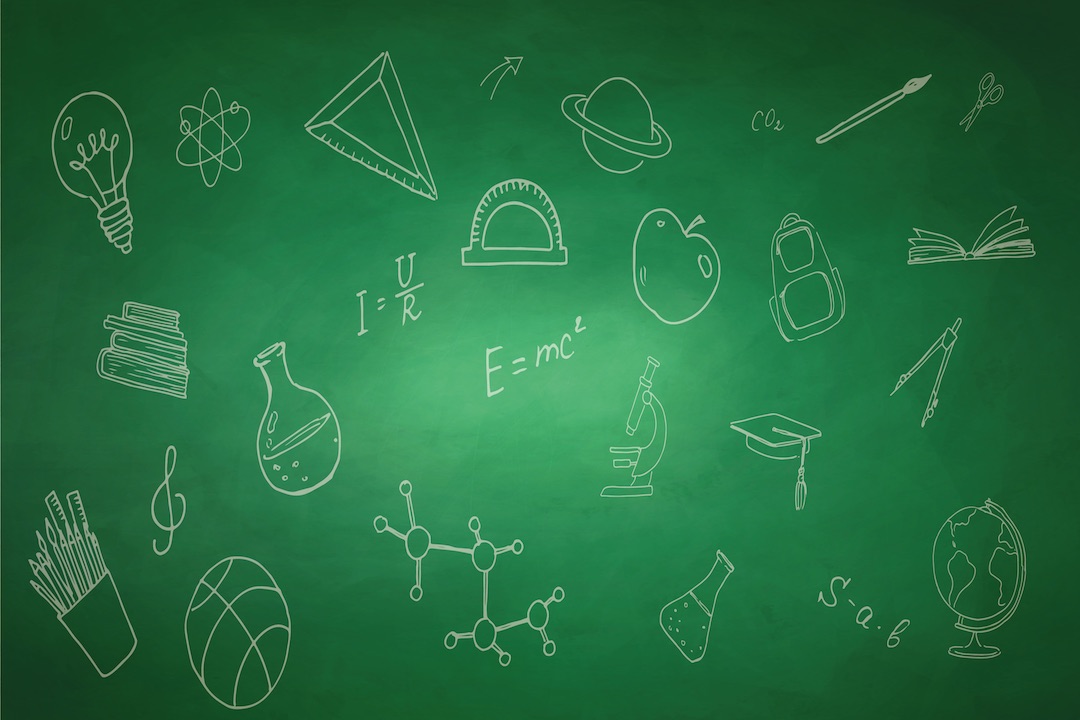 CO₂
I = U/R
E = mc²
S - a . b